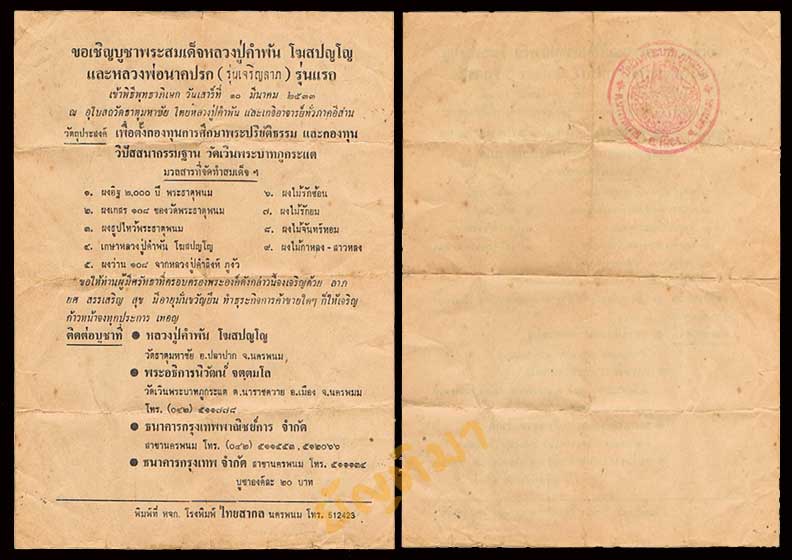 ขอเชิญบูชาพระสมเด็จหลวงปู่คำพัน โฆสปญฺโญ
และหลวงพ่อนาคปรก (รุ่นเจริญลาภ) รุ่นแรก
เข้าพิธีพุทธาภิเษก วันเสาร์ที่ ๑๐ มีนาคม ๒๕๓๓
ณ อุโบสถวัดธาตุมหาชัย โดยหลวงปู่คำพัน และเกจิอาจารย์ทั่วภาคอีสาน
วัตถุประสงค์ เพื่อตั้งกองทุนการศึกษาพระปริยัติธรรม และกองทุน
วิปัสสนากรรมฐาน วัดเวินพระบาทภูกระแต
มวลสารที่จัดทำสมเด็จ ฯ
๑. ผงอิฐ ๒,๐๐๐ ปี พระธาตุพนม
๒. ผงเกสร ๑๐๘ ของวัดพระธาตุพนม
๓. ผงธูปไหว้พระธาตุพนม
๔. เกษาหลวงปู่คำพัน โฆสปญฺโญ
๕. ผงว่าน ๑๐๘ จากหลวงปู่คำสิงห์ ภูงัว
๖. ผงไม้รักซ้อน
๗. ผงไม้รักยม
๘. ผงไม้จันทร์หอม
๙. ผงไม้กาหลง - สาวหลง
ขอให้ท่านผู้มีศรัทธาที่ครอบครองพระองค์ดังกล่าวนี้จงเจริญด้วย ลาภ
ยศ สรรเสริญ สุข มีอายุมั่นขวัญยืน ทำธุระกิจการค้าขายใดๆ ก็ให้เจริญ
ก้าวหน้าจงทุกประการ เทอญ
ติดต่อบูชาที่ ● หลวงปู่คำพัน โฆสปญฺโญ
วัดธาตุมหาชัย อ.ปลาปาก จ.นครพนม,
● พระอธิการนิวัฒน์ จตฺตมโล
วัดเวินพระบาทภูกระแต ต.นาราชควาย อ.เมือง จ.นครพนม
โทร. (๐๔๒) ๕๑๑๘๘๘
● ธนาคารกรุงเทพพาณิชย์การ จำกัด
สาขานครพนม โทร. (๐๔๒) ๕๑๑๕๕๓, ๕๑๒๐๖๖
● ธนาคารกรุงเทพ จำกัด สาขานครพนม โทร. ๕๑๑๑๓๔
บูชาองค์ละ ๒๐ บาท
พิมพ์ที่ หจก. โรงพิมพ์ ไทยสากล นครพนม โทร. 512423